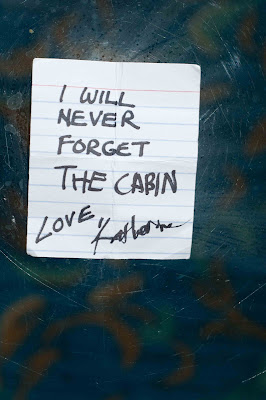 I WILL
NEVER
FORGET
THE CABIN
LOVE,
Katherine